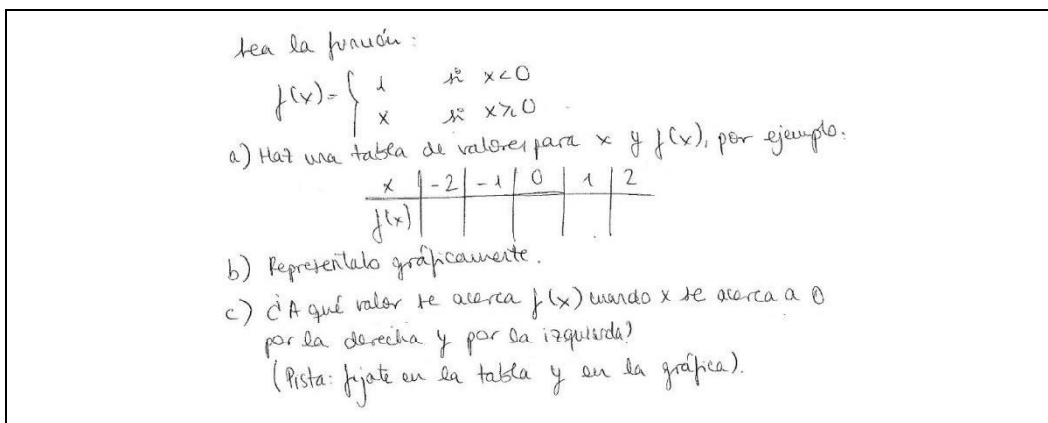 Sea la función:
f(x) = { 1 si x<0
x si x≥0
a) Haz una tabla de valores para x y f(x), por ejemplo:
x | -2 | -1 | 0 | 1 | 2
f(x)
b) Represéntalo gráficamente.
c) ¿A qué valor se acerca f(x) cuando x se acerca a 0
por la derecha y por la izquierda?
(Pista: fíjate en la tabla y en la gráfica).